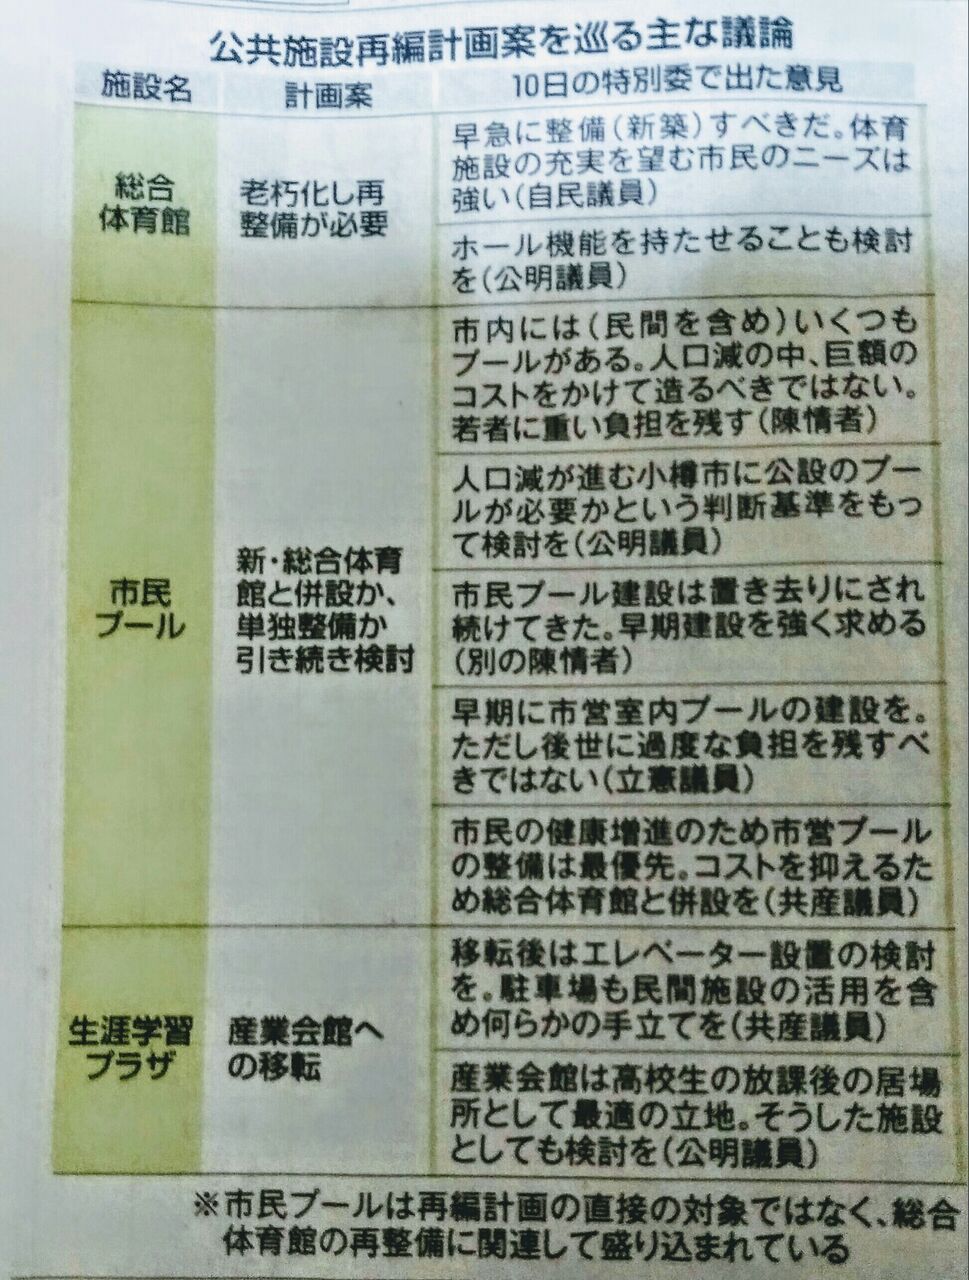 公共施設再編計画案を巡る主な議論
施設名
計画案
10日の特別委で出た意見
総合
体育館
老朽化し再
整備が必要
早急に整備(新築)すべきだ。体育
施設の充実を望む市民のニーズは
強い(自民議員)
ホール機能を持たせることも検討
を(公明議員)
市民
プール
新・総合体育
館と併設か、
単独整備か
引き続き検討
市内には(民間を含め)いくつも
プールがある。人口減の中、巨額の
コストをかけて造るべきではない。
若者に重い負担を残す(陳情者)
人口減が進む小樽市に公設のプー
ルが必要かという判断基準をもっ
て検討を(公明議員)
市民プール建設は置き去りにされ
続けてきた。早期建設を強く求める
(別の陳情者)
早期に市営室内プールの建設を。
ただし後世に過度な負担を残すべ
きではない(立憲議員)
市民の健康増進のため市営プール
の整備は最優先。コストを抑えるた
め総合体育館と併設を(共産議員)
生涯学習
プラザ
産業会館へ
の移転
移転後はエレベーター設置の検討
を。駐車場も民間施設の活用を含
め何らかの手立てを(共産議員)
産業会館は高校生の放課後の居場
所として最適の立地。そうした施設
としても検討を(公明議員)
※市民プールは再編計画の直接の対象ではなく、総合
体育館の再整備に関連して盛り込まれている